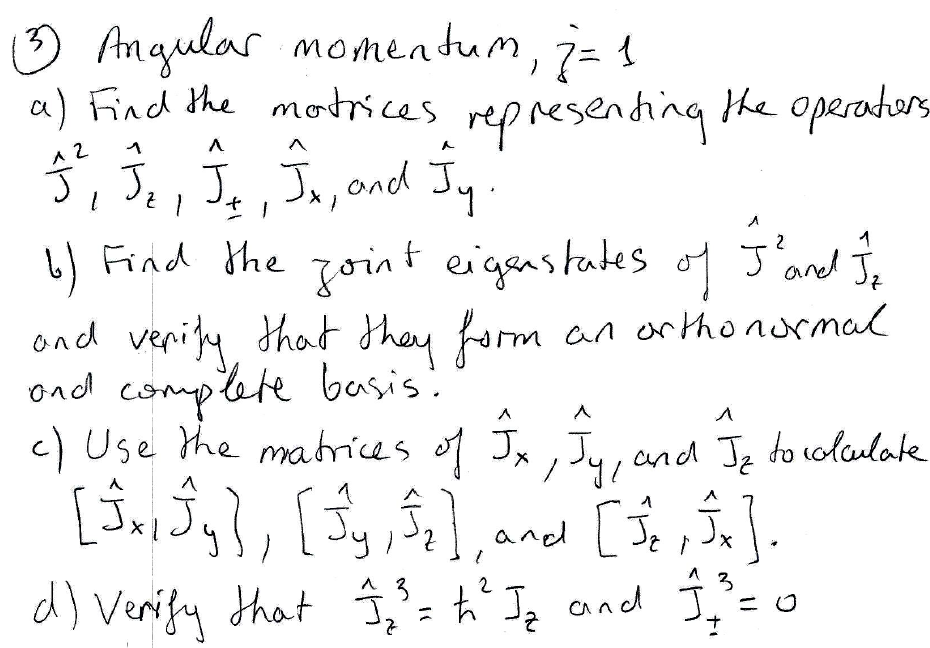 ③ Angular momentum, j = 1
a) Find the matrices representing the operators
Ĵ², Ĵz, Ĵ±, Ĵx, and Ĵy.
b) Find the joint eigenstates of Ĵ² and Ĵz
and verify that they form an orthonormal
and complete basis.
c) Use the matrices of Ĵx, Ĵy, and Ĵz to calculate
[Ĵx, Ĵy], [Ĵy, Ĵz], and [Ĵz, Ĵx].
d) Verify that Ĵz³ = ħ² Jz and Ĵ±³ = 0